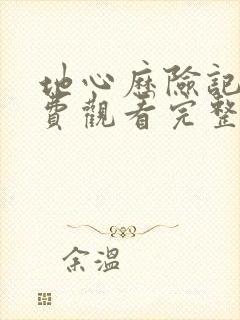 地心歷險記
費觀看完整
余溫